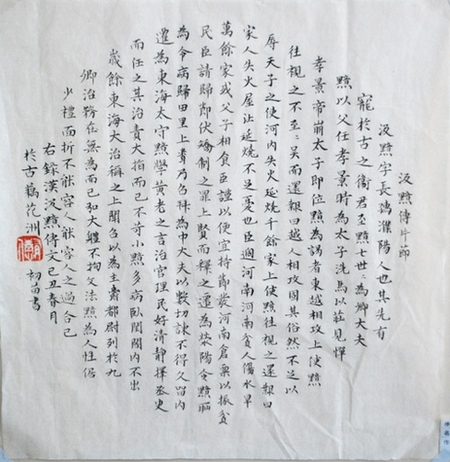 汲黯傳片節
汲黯字長孺濮陽人也其先有
寵於古之衛君至黯七世々為卿大夫
黯以父任孝景時為太子洗馬以莊見憚
孝景帝崩太子即位黯為謁者東越相攻上使黯
往視之不至々吳而還報曰越人相攻固其俗然不足以
辱天子之使河內失火延燒千餘家上使黯往視之還報曰
家人失火屋比延燒不足憂也臣過河南河南貧人傷水旱
萬餘家或父子相食臣謹以便宜持節發河南倉粟以振貧
民臣請歸節伏矯制之罪上賢而釋之遷為滎陽令黯恥
為令病歸田里上聞乃召拜為中大夫以數切諫不得久留內
遷為東海太守黯學黃老之言治官理民好清靜擇丞史
而任之其治責大指而已不苛小黯多病臥閨閤內不出
歲餘東海大治稱之上聞召以為主爵都尉列於九
卿治務在無為而已大體不拘文法黯為人性倨
少禮面折不能容人能容人之過合己
右錄漢汲黯傳文己丑春月
於古花洲 書